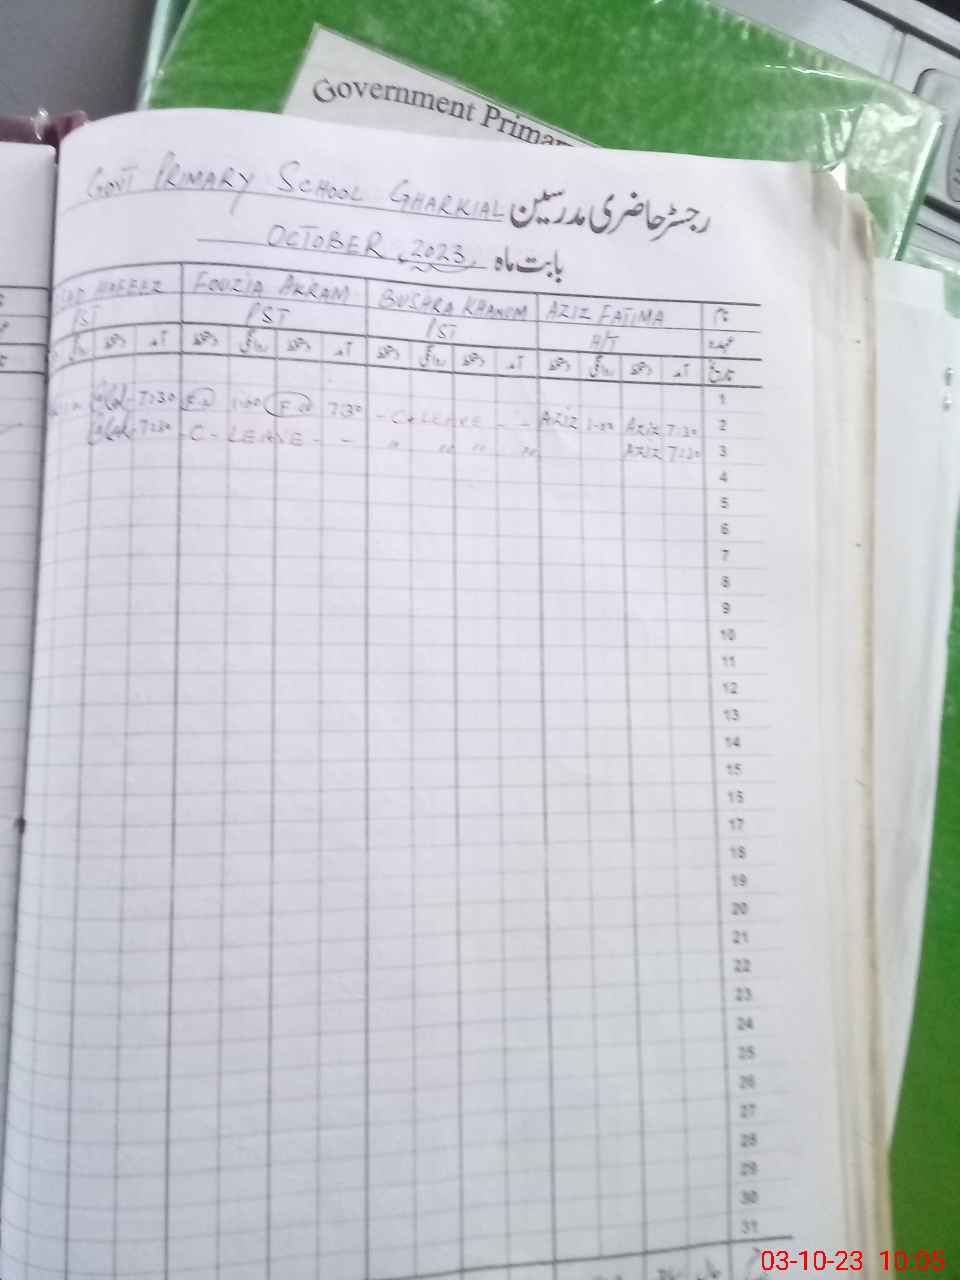 Government Primar
GOVT PRIMARY SCHOOL GHARKIAL رجسٹر حاضری مدرسین
OCTOBER 2023 بابت ماہ
HAFEEZ FOUZIA AKRAM BUSHRA KHANUM AZIZ FATIMA نام
PST PST PST H/T عہدہ
دستخط آمد دستخط روانگی دستخط آمد دستخط روانگی دستخط آمد دستخط روانگی دستخط آمد تاریخ
1
7:30 1-00 7:30 - C-LEAVE - - AZIZ 1-00 AZIZ 7:30 2
7:30 - C - LEAVE - - " " " " AZIZ 7:30 3
4
5
6
7
8
9
10
11
12
13
14
15
16
17
18
19
20
21
22
23
24
25
26
27
28
29
30
31
03-10-23 10:05